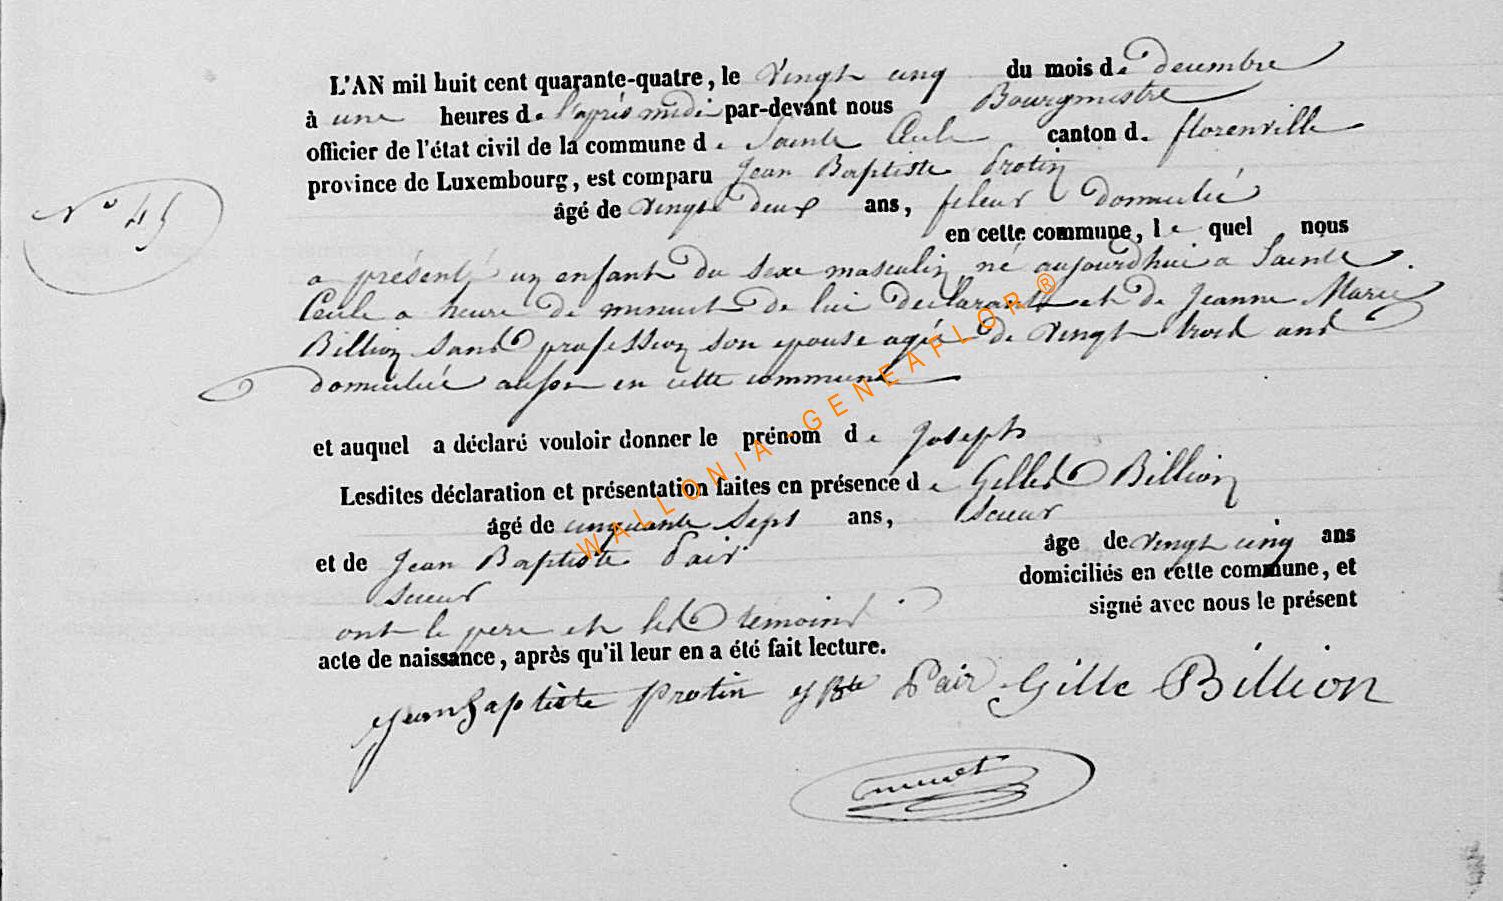 L'AN mil huit cent quarante-quatre, le vingt cinq du mois de decembre
à une heures de l'après midi par-devant nous Bourgmestre
officier de l'état civil de la commune de Sainte Cecile canton de florenville
province de Luxembourg, est comparu Jean Baptiste Protin
âgé de vingt deux ans, fileur domicilié
en cette commune, le quel nous
N° 45
a présenté un enfant du sexe masculin né aujourdhui a Sainte
Cecile a heure de minuit de lui declarant et de Jeanne Marie
Billion sans profession son epouse agée de vingt trois ans
domiciliée aussi en cette commune
et auquel a déclaré vouloir donner le prénom de Joseph
Lesdites déclaration et présentation faites en présence de Gilles Billion
âgé de cinquante sept ans, scieur
et de Jean Baptiste Pair âge de vingt cinq ans
scieur domiciliés en cette commune, et
ont le pere et les témoins signé avec nous le présent
acte de naissance, après qu'il leur en a été fait lecture.
Jean Baptiste Protin J Bte Pair Gille Billion
WALLONIA-GENEAFLOR®